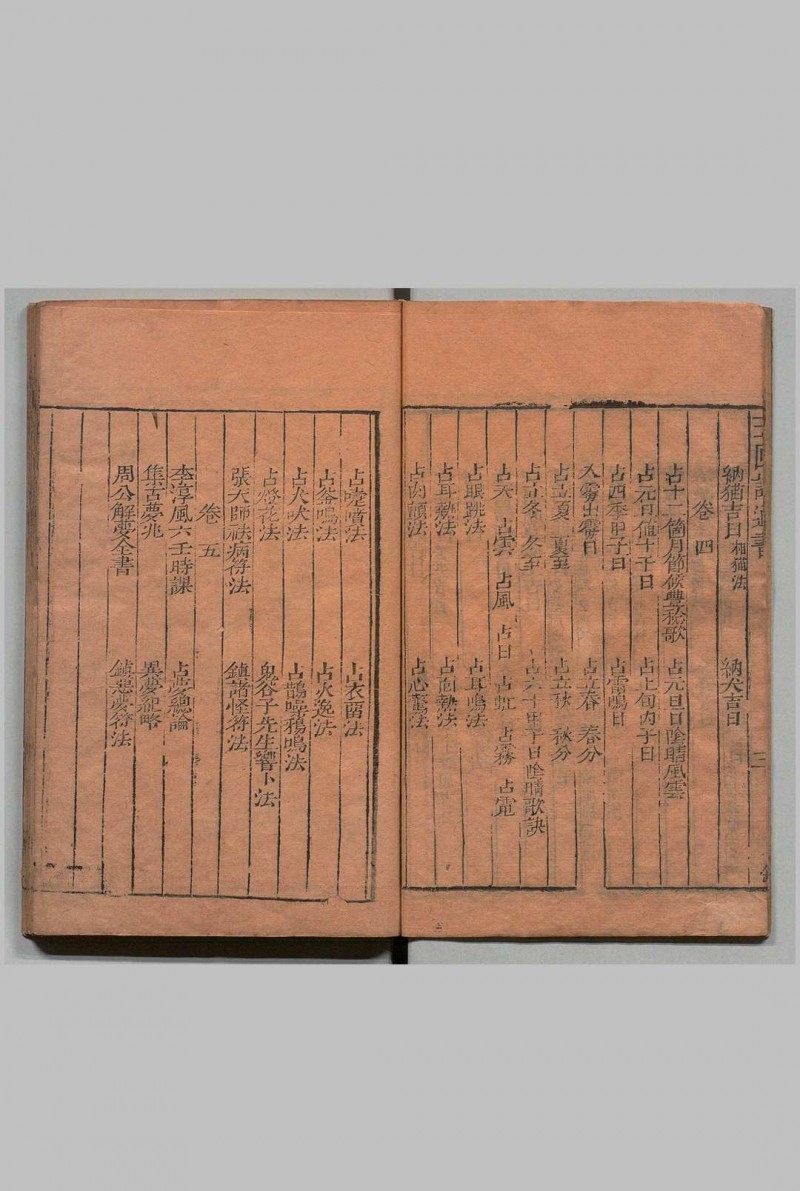 納猫吉日 相猫法 納犬吉日
卷四
占十二箇月節候豊稔歌 占元旦日陰晴風雲
占元日值十干日 占上旬内子日
占四季甲子日 占雷鳴日
入霧出霧日 占立春 春分
占立夏 夏至 占立秋 秋分
占立冬 冬至 占六十甲子日陰晴歌訣
占天 占雲 占風 占日 占虹 占霧 占電
占眼跳法 占耳鳴法
占耳熱法 占面熱法
占肉顫法 占心驚法
占嚏噴法 占衣留法
占釜鳴法 占火逸法
占犬吠法 占鵲噪鴉鳴法
占燈花法 鬼谷子先生響卜法
張天師祛病符法 鎮諸怪符法
卷五
李淳風六壬時課 占夢總論
集古夢兆 異夢紀略
周公解夢全書 鎮惡夢符法